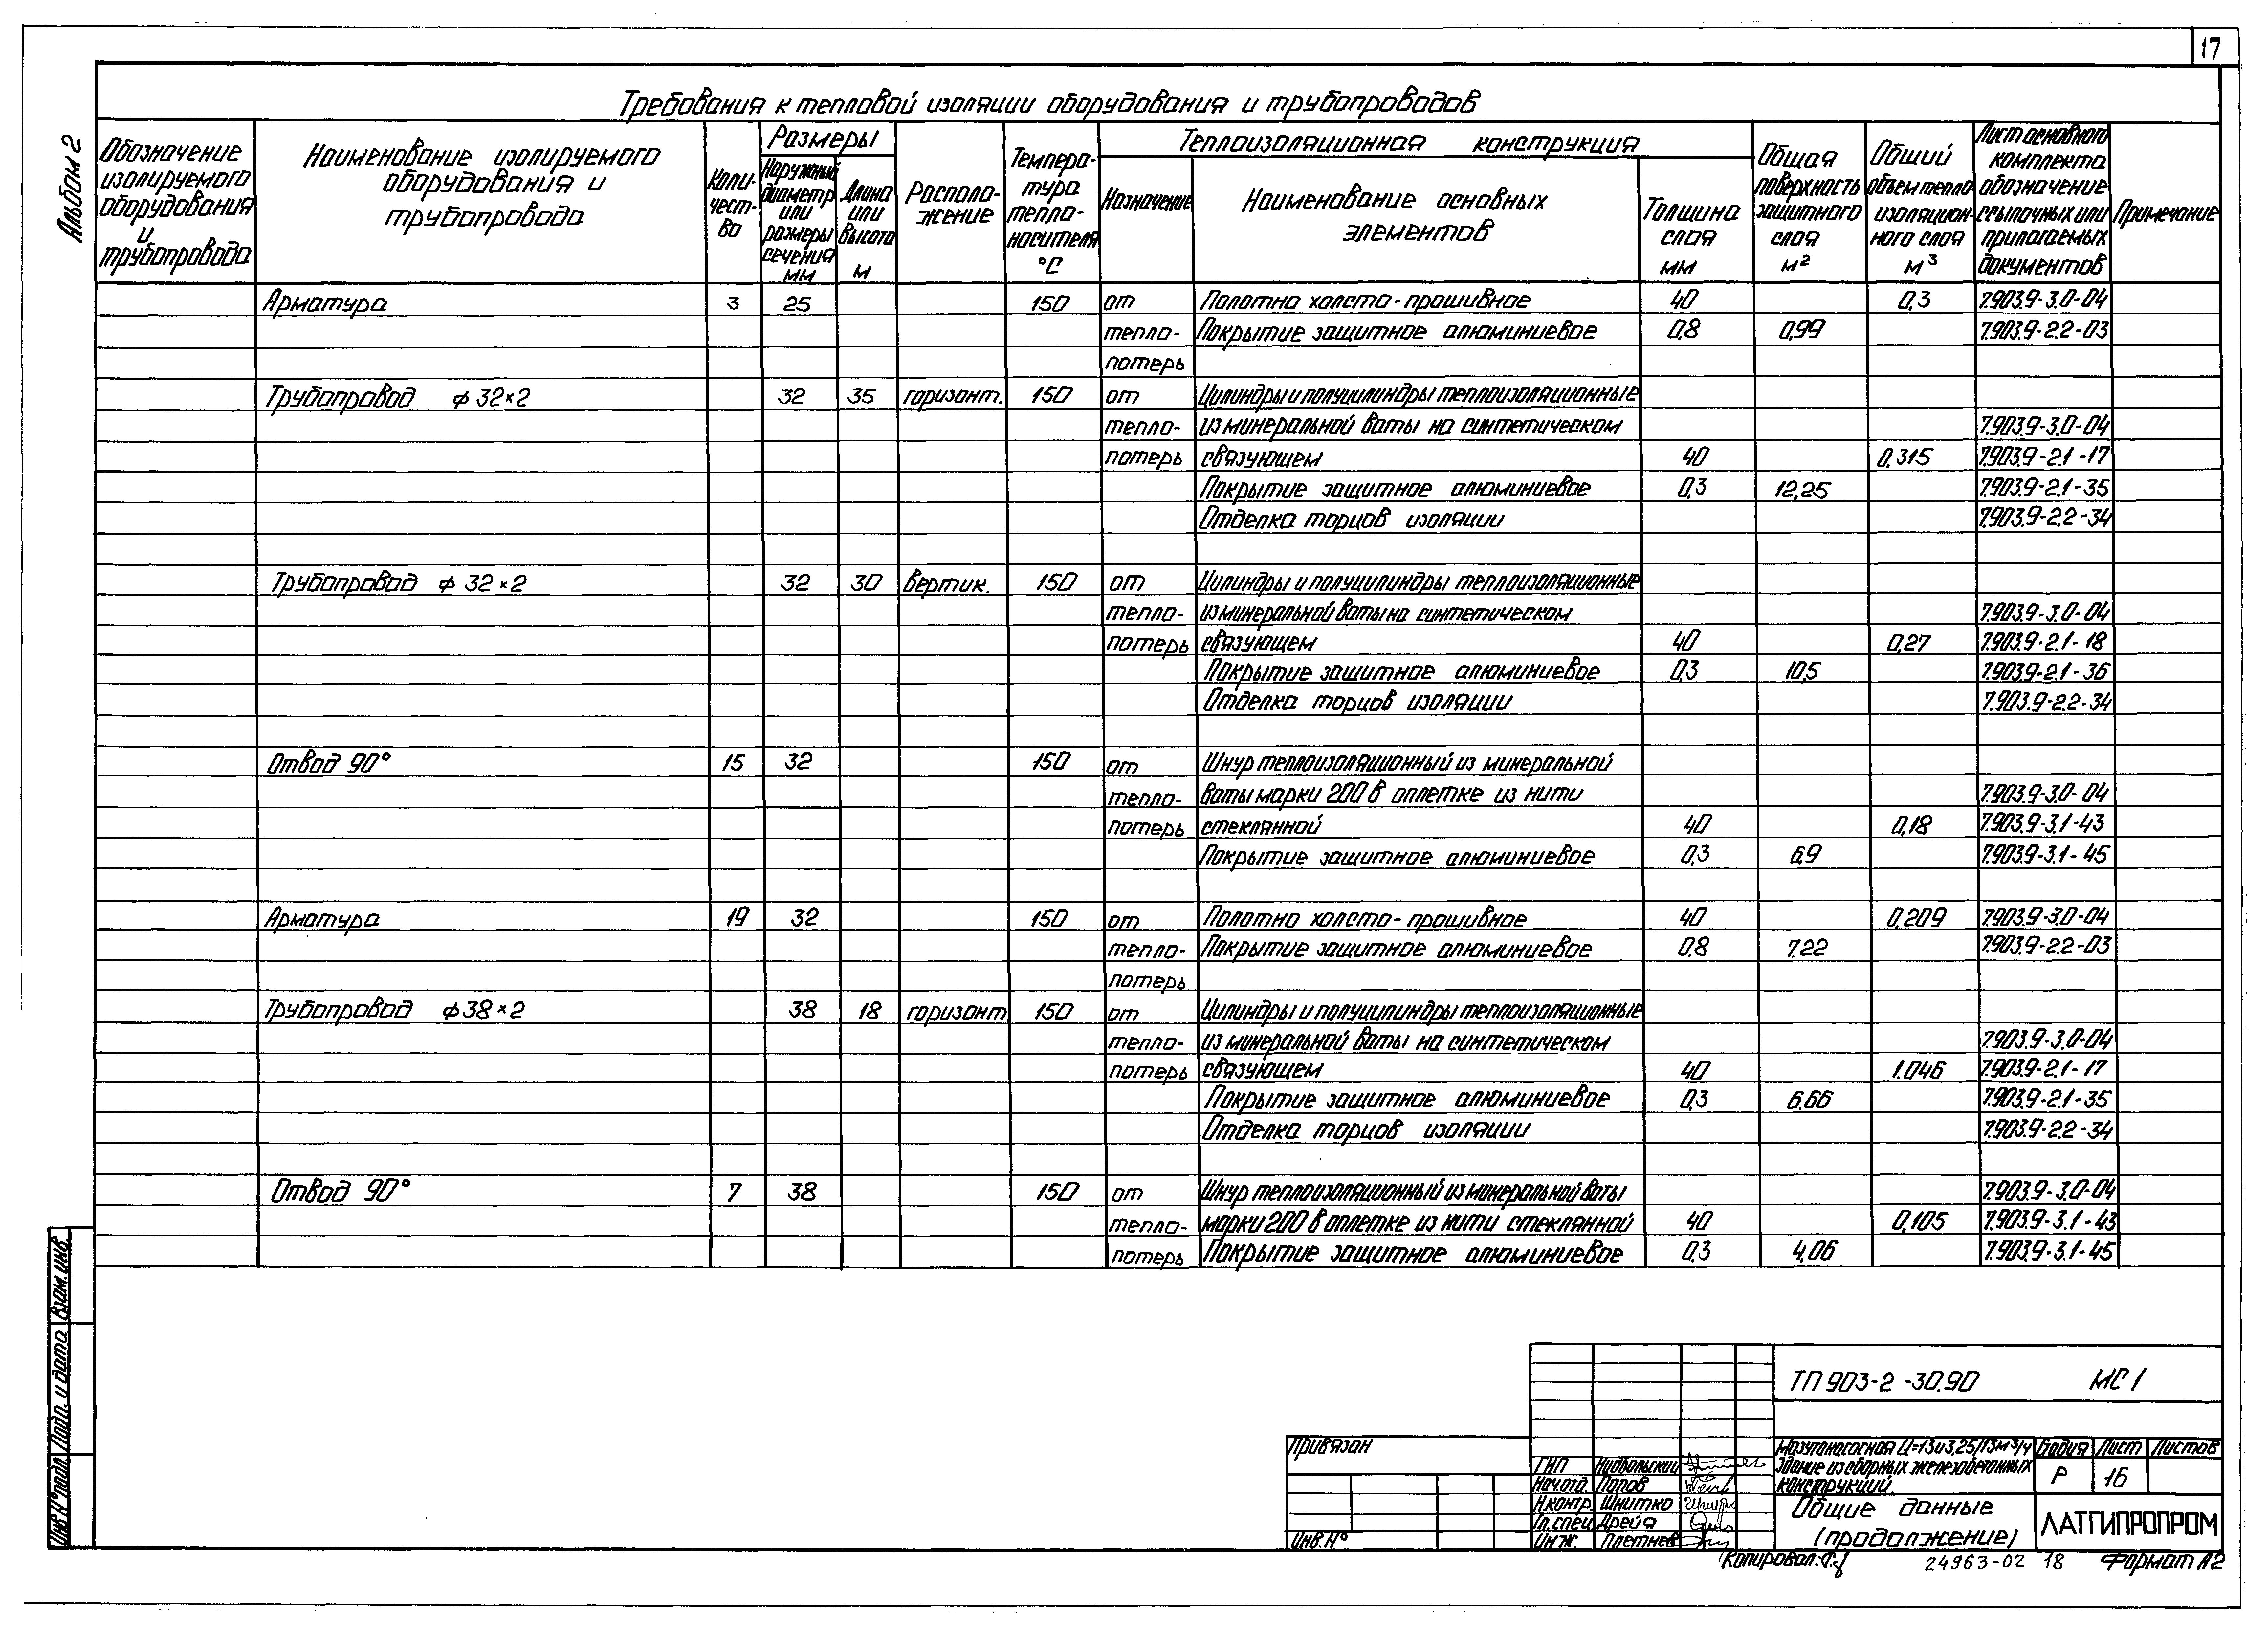 17
Альбом 2
Требования к тепловой изоляции оборудования и трубопроводов
Обозначение изолируемого оборудования и трубопровода
Наименование изолируемого оборудования и трубопровода
Количест-во
Размеры
Наружный диаметр или размеры сечения мм
Длина или высота м
Располо-жение
Темпера-тура тепло-носителя °С
Теплоизоляционная конструкция
Назначение
Наименование основных элементов
Толщина слоя мм
Общая поверхность защитного слоя м²
Общий объем тепло изоляцион-ного слоя м³
Лист основного комплекта обозначение ссылочных или прилагаемых документов
Примечание
Арматура 3 25 150 от Полотно холсто-прошивное 40 0,3 7.903.9-3.0-04
тепло- Покрытие защитное алюминиевое 0,8 0,99 7.903.9-2.2-03
потерь
Трубопровод ф 32×2 32 35 горизонт. 150 от Цилиндры и полуцилиндры теплоизоляционные
тепло- из минеральной ваты на синтетическом 7.903.9-3.0-04
потерь связующем 40 0,315 7.903.9-2.1-17
Покрытие защитное алюминиевое 0,3 12,25 7.903.9-2.1-35
Отделка торцов изоляции 7.903.9-2.2-34
Трубопровод ф 32×2 32 30 вертик. 150 от Цилиндры и полуцилиндры теплоизоляционные
тепло- из минеральной ваты на синтетическом 7.903.9-3.0-04
потерь связующем 40 0,27 7.903.9-2.1-18
Покрытие защитное алюминиевое 0,3 10,5 7.903.9-2.1-36
Отделка торцов изоляции 7.903.9-2.2-34
Отвод 90° 15 32 150 от Шнур теплоизоляционный из минеральной
тепло- ваты марки 200 в оплетке из нити 7.903.9-3.0-04
потерь стеклянной 40 0,18 7.903.9-3.1-43
Покрытие защитное алюминиевое 0,3 6,9 7.903.9-3.1-45
Арматура 19 32 150 от Полотно холсто-прошивное 40 0,209 7.903.9-3.0-04
тепло- Покрытие защитное алюминиевое 0,8 7.22 7.903.9-2.2-03
потерь
Трубопровод ф 38×2 38 18 горизонт 150 от Цилиндры и полуцилиндры теплоизоляционные
тепло- из минеральной ваты на синтетическом 7.903.9-3.0-04
потерь связующем 40 1.046 7.903.9-2.1-17
Покрытие защитное алюминиевое 0,3 6.66 7.903.9-2.1-35
Отделка торцов изоляции 7.903.9-2.2-34
Отвод 90° 7 38 150 от Шнур теплоизоляционный из минеральной ваты 7.903.9-3.0-04
тепло- марки 200 в оплетке из нити стеклянной 40 0,105 7.903.9-3.1-43
потерь Покрытие защитное алюминиевое 0,3 4,06 7.903.9-3.1-45
Взам. инв.
Подп. и дата
Инв № подл.
Привязан
Инв. №
ТП 903-2-30.90 МС 1
Мазутонасосная Q=13и3,25/13м³/ч
Здание из сборных железобетонных
конструкций.
Стадия Лист Листов
Р 16
ГИП Нидбальский
Нач.отд. Попов
Н.контр. Шнитко
Гл.спец. Дрейя
Инж. Плетнев
Общие данные
(продолжение)
ЛАТГИПРОПРОМ
Копировал:
24963-02 18
Формат А2